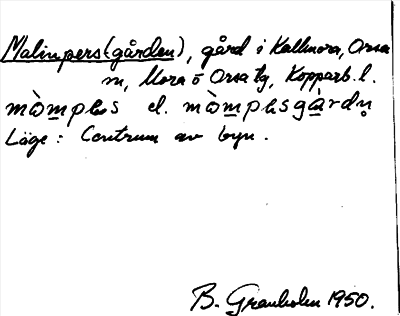 Malinpers(gården), gård i Kallmora, Orsa
sn, Mora o Orsa tg, Kopparb. l.
mòmpləs el. mòmpləsgàrdn̥
Läge: Centrum av byn.
B. Granholm 1950.